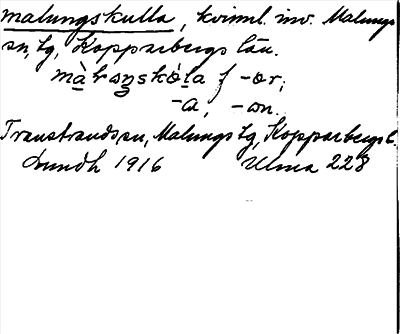 malungskulla, kvinnl. inv. Malungs
sn, tg, Kopparbergs län.
f -ær;
-a, -ɷn.
Transtrands sn, Malungs tg, Kopparbergs l.
Lundh 1916 Ulma 228